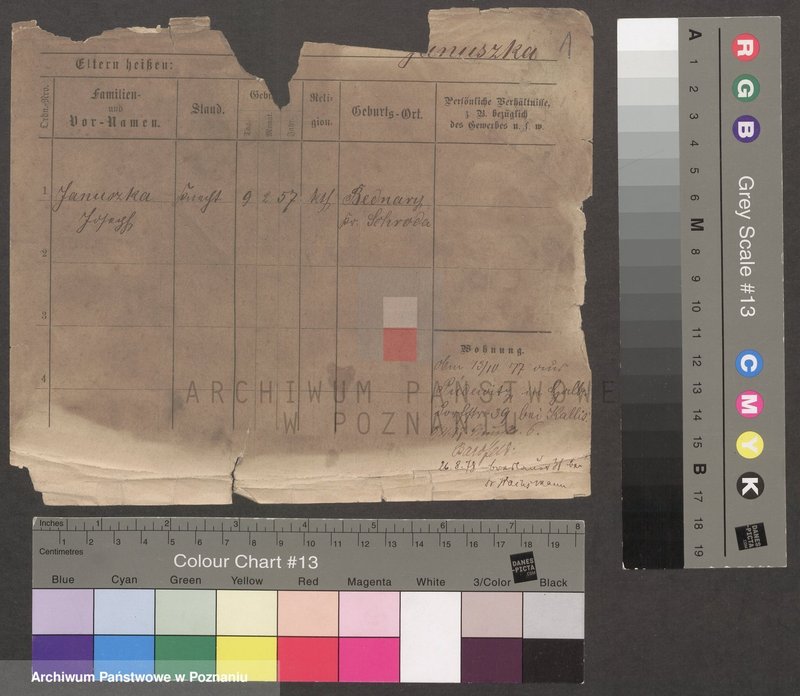 Januszka
1
Eltern heißen:
Ordn.-Nro.
Familien-
und
Vor-Namen.
Stand.
Geb
Tag.
Monat.
Jahr.
Reli-
gion.
Geburts-Ort.
Persönliche Verhältnisse,
z. B. bezüglich
des Gewerbes u. s. w.
1
Januszka
Joseph
Knecht
9
2
57
kth
Bednary
Kr. Schroda
2
3
4
Wohnung.
13/10 77 aus
39 bei Kallis
26.8.78 Breslauerstr bei
ARCHIWUM PAŃSTWOWE
W POZNANIU
Inches 1 2 3 4 5 6 7 8
1 2 3 4 5 6 7 8 9 10 11 12 13 14 15 16 17 18 19
Centimetres
Colour Chart #13
DANES
-PICTA
.COM
Blue Cyan Green Yellow Red Magenta White 3/Color Black
Archiwum Państwowe w Poznaniu
A 1 2 3 4 5 6 M 8 9 10 11 12 13 14 15 B 17 18 19
R G B
Grey Scale #13
C M Y K
DANES
-PICTA
.COM